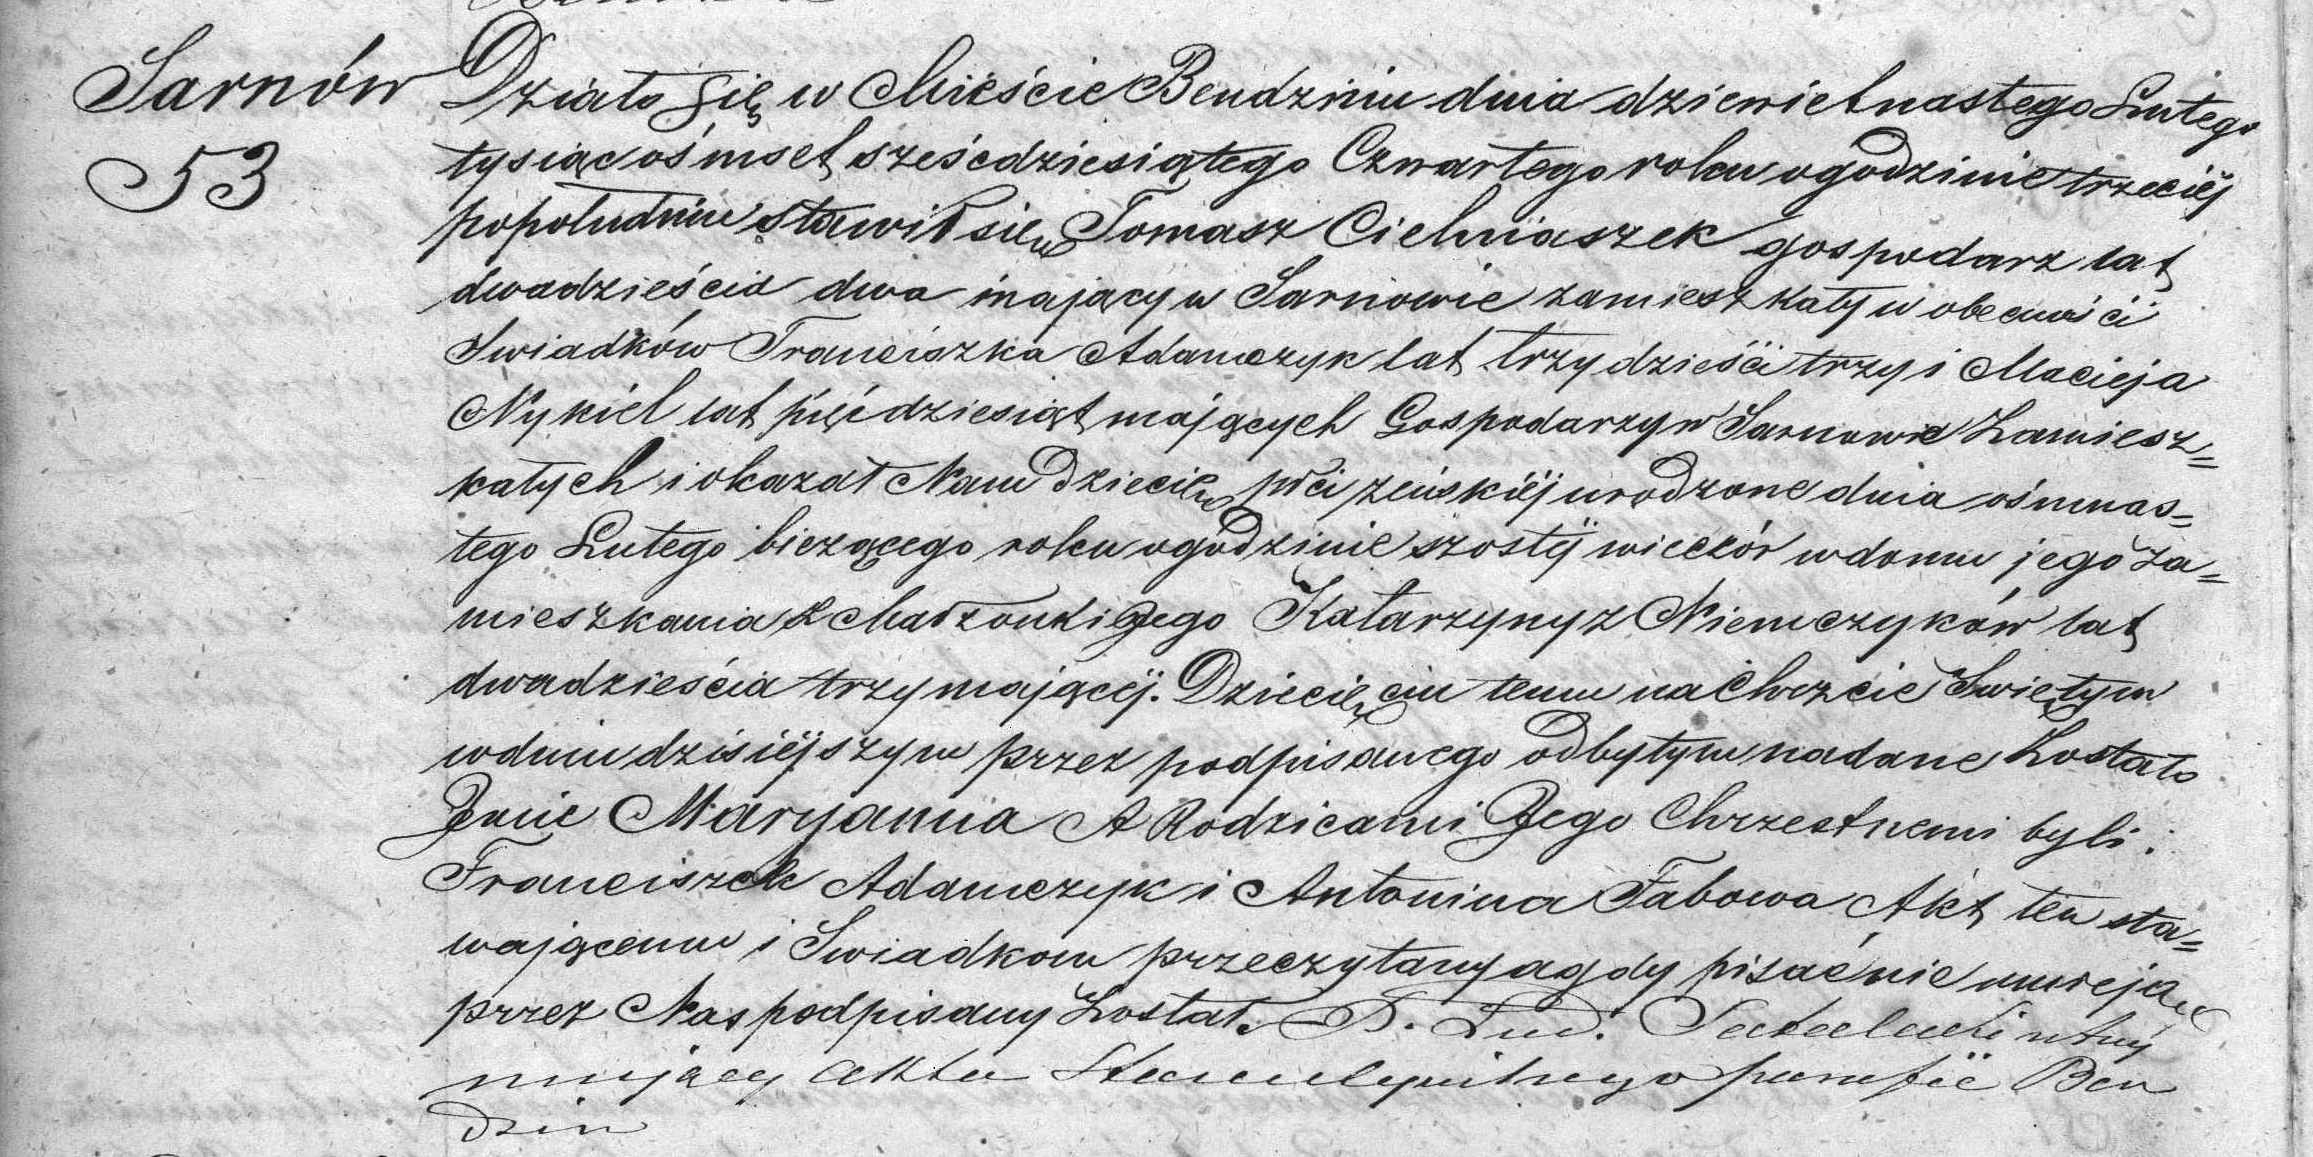 Sarnów
53
Działo się w Mieście Bendzinie dnia dziewietnastego Lutego
tysiąc ośmset sześcdziesiątego Czwartego roku o godzinie trzeciéj
popołudniu stawił się Tomasz Cielniaszek gospodarz lat
dwadzieścia dwa mający w Sarnowie zamieszkały w obecności
Swiadków Franciszka Adamczyk lat trzydzieści trzy i Macieja
Nykiel lat pięćdziesiąt mających Gospodarzy w Sarnowie Zamiesz=
kałych i okazał Nam Dziecie płci zeńskiéj urodzone dnia ośmnas=
tego Lutego biezącego roku o godzinie szostéj wieczór w domu jego za=
mieszkania z Małzonki Jego Katarzyny z Niemczyków lat
dwadzieścia trzy mającéj. Dziecięciu temu na Chrzcie Swiętym
w dniu dzisiéjszym przez podpisanego odbytym nadane Zostało
Jmie Maryanna A Rodzicami Jego Chrzestnemi byli:
Franciszek Adamczyk i Antonina Fabowa Akt ten sta=
wającemu i Swiadkom przeczytany a gdy pisać nie umieją
przez Nas podpisany Został.
mujący Akta parafii Ben
dzin